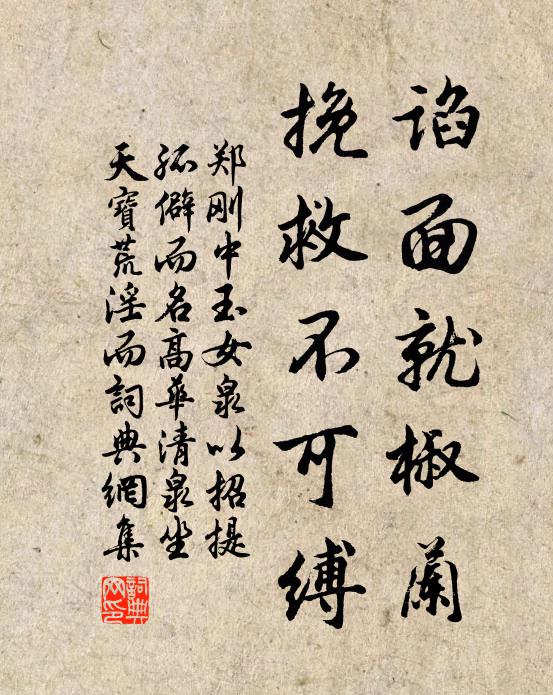 谄面就椒蘭
挽救不可縛
郑刚中玉女泉以招提
孤僻而名高華清泉坐
天寶荒淫而詞典網集
詞典网印